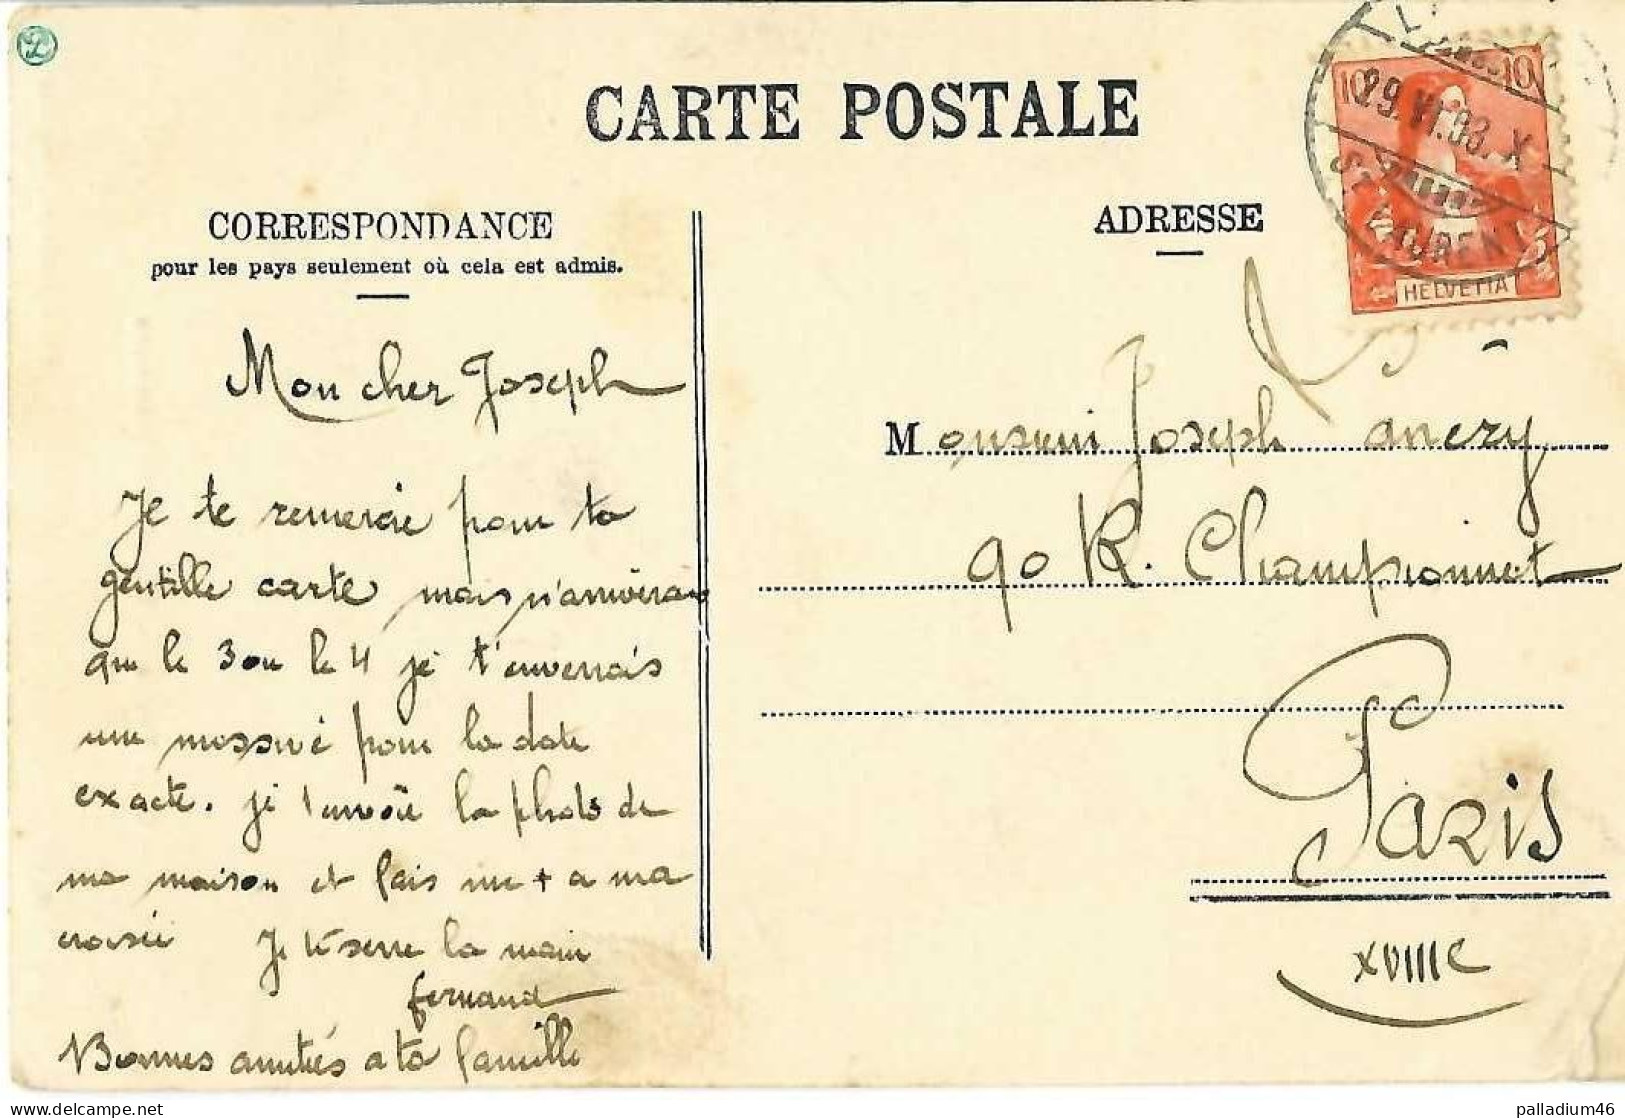 2
CARTE POSTALE
CORRESPONDANCE
pour les pays seulement où cela est admis.
Mon cher Joseph
Je te remercie pour ta
gentille carte mais n'arriverai
que le 3 ou le 4 je t'enverrais
une missive pour la date
exacte. je t'envoie la photo de
ma maison et fais une + a ma
croisée Je te serre la main
fernand
Bonnes amitiés a ta famille
ADRESSE
10 10
29.VI.08.X
ST LAURENT
HELVETIA
Monsieur Joseph Lanery
90 R. Championnet
Paris
XVIIIe
palladium46